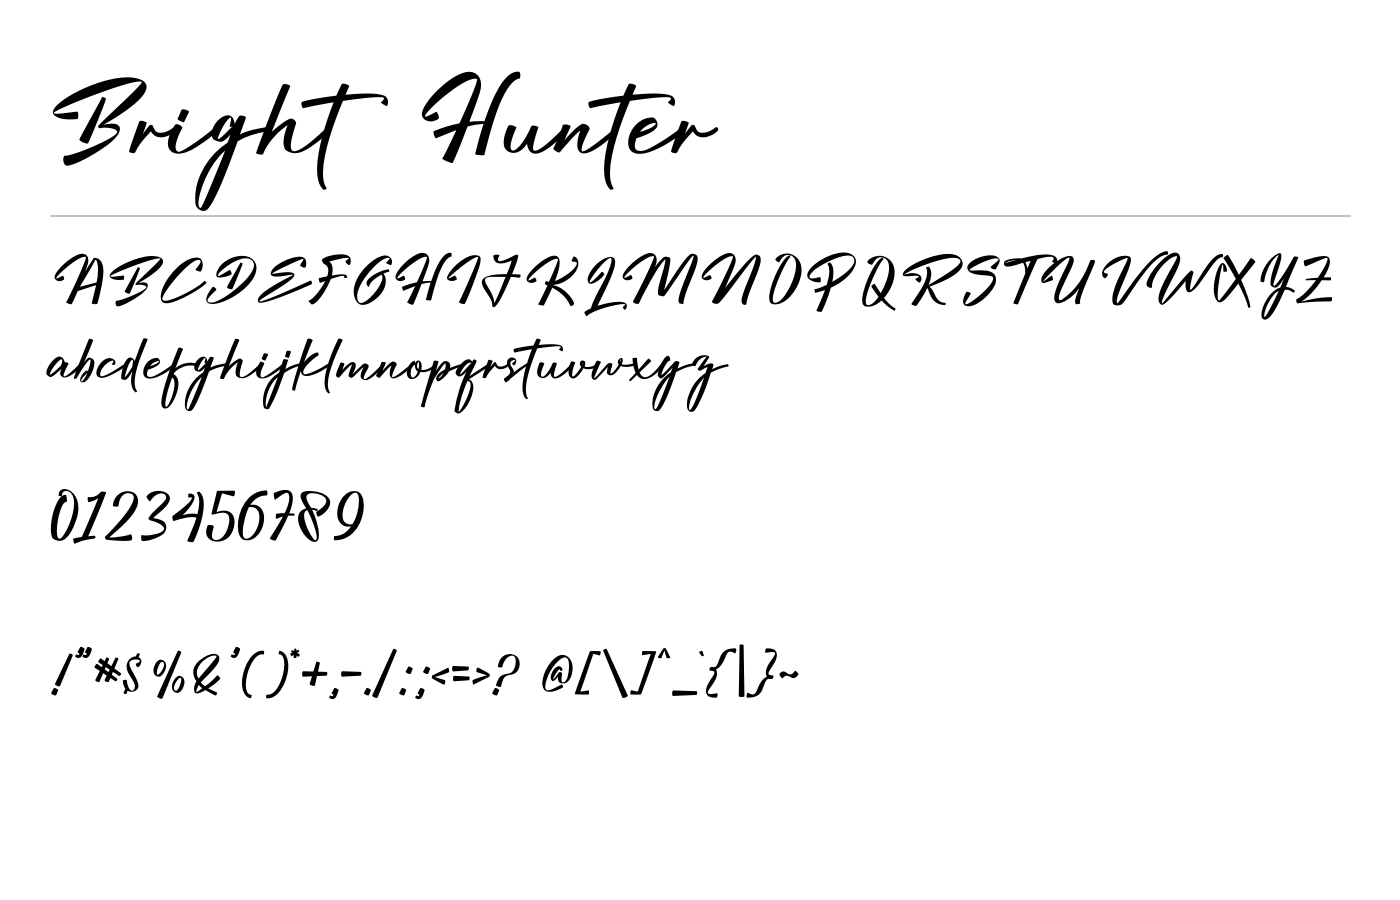 Bright Hunter
ABCDEFGHIJKLMNOPQRSTUVWXYZ
abcdefghijklmnopqrstuvwxyz
0123456789
!"#$%&'()*+,-./:;<=>?@[\]^_`{|}~